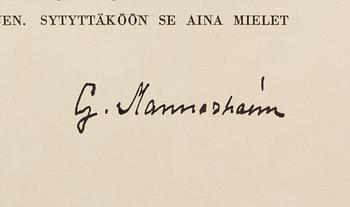 NEN. SYTYTTÄKÖÖN SE AINA MIELET
G. Mannerheim